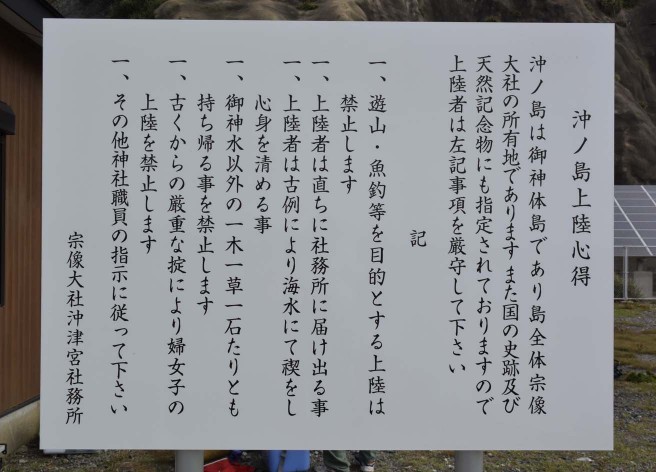 沖ノ島上陸心得
沖ノ島は御神体島であり島全体宗像
大社の所有地であります また国の史跡及び
天然記念物にも指定されておりますので
上陸者は左記事項を厳守して下さい
記
一、遊山・魚釣等を目的とする上陸は
禁止します
一、上陸者は直ちに社務所に届け出る事
一、上陸者は古例により海水にて禊をし
心身を清める事
一、御神水以外の一木一草一石たりとも
持ち帰る事を禁止します
一、古くからの厳重な掟により婦女子の
上陸を禁止します
一、その他神社職員の指示に従って下さい
宗像大社沖津宮社務所